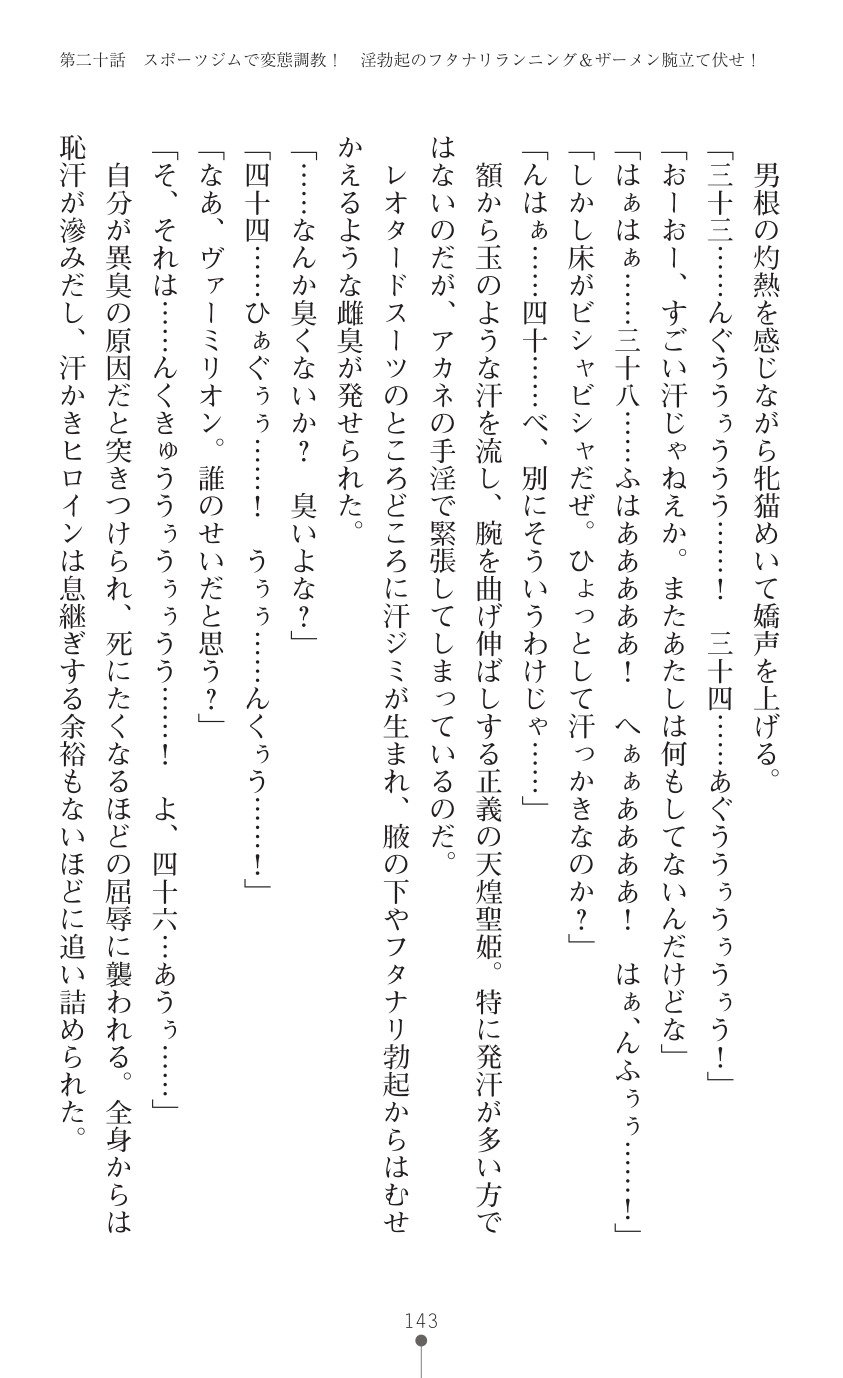 第二十話　スポーツジムで変態調教！　淫勃起のフタナリランニング＆ザーメン腕立て伏せ！
男根の灼熱を感じながら牝猫めいて嬌声を上げる。
「三十三……んぐううぅううう……！　三十四……あぐううぅうぅうぅう！」
「おーおー、すごい汗じゃねえか。またあたしは何もしてないんだけどな」
「はぁはぁ……三十八……ふはああああああ！　へぁぁああああ！　はぁ、んふぅぅ……！」
「しかし床がビシャビシャだぜ。ひょっとして汗っかきなのか？」
「んはぁ……四十……べ、別にそういうわけじゃ……」
額から玉のような汗を流し、腕を曲げ伸ばしする正義の天煌聖姫。特に発汗が多い方で
はないのだが、アカネの手淫で緊張してしまっているのだ。
レオタードスーツのところどころに汗ジミが生まれ、腋の下やフタナリ勃起からはむせ
かえるような雌臭が発せられた。
「……なんか臭くないか？　臭いよな？」
「四十四……ひぁぐぅぅ……！　うぅぅ……んくぅう……！」
「なあ、ヴァーミリオン。誰のせいだと思う？」
「そ、それは……んくきゅううぅうぅぅうう……！　よ、四十六…あうぅ……」
自分が異臭の原因だと突きつけられ、死にたくなるほどの屈辱に襲われる。全身からは
恥汗が滲みだし、汗かきヒロインは息継ぎする余裕もないほどに追い詰められた。
143